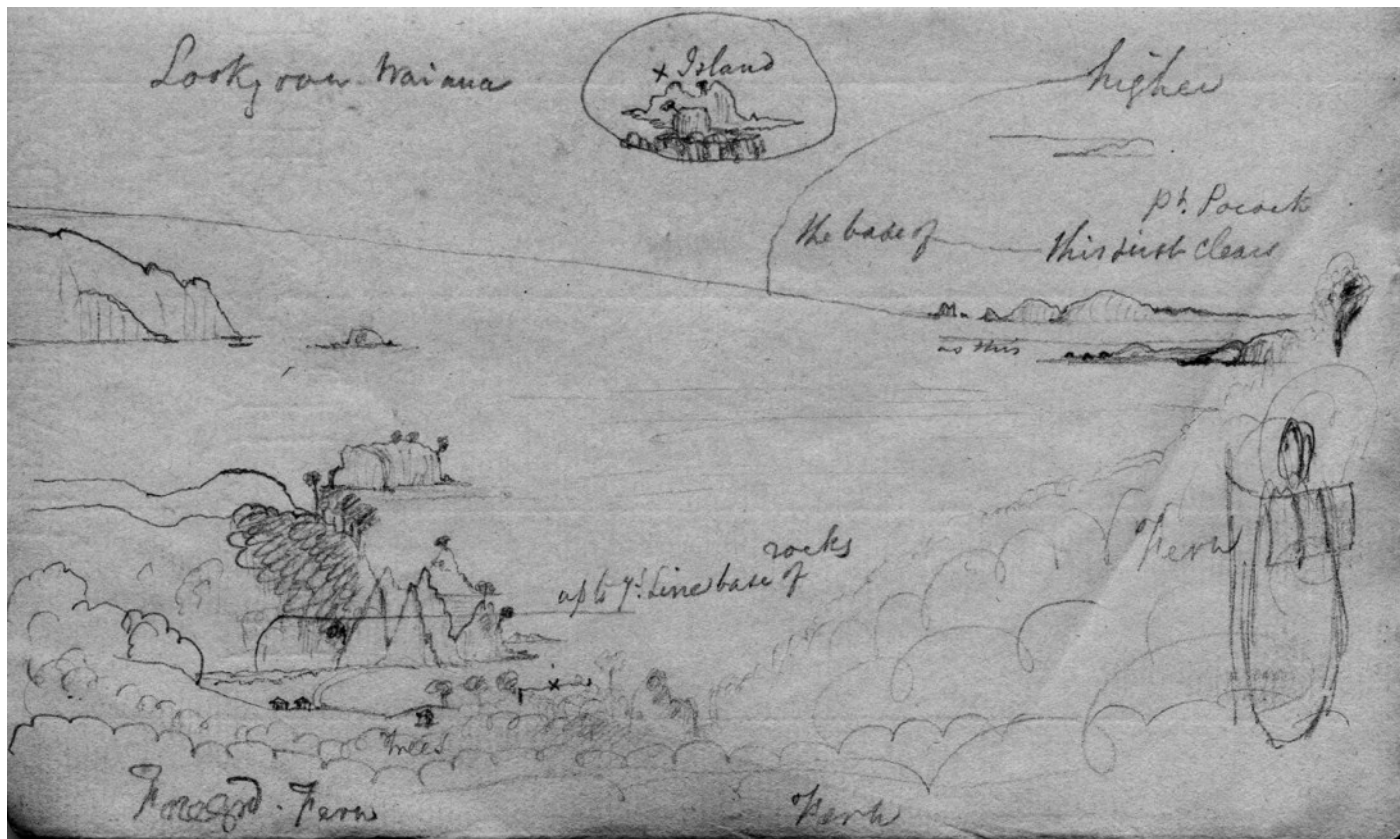 Look<sup>g</sup> over Waiaua
x Island
higher
Pt. Pocock
the base of this just clears
as this
Fern
rocks
up to ys. line base of
trees
Foregrd. Fern
Fern